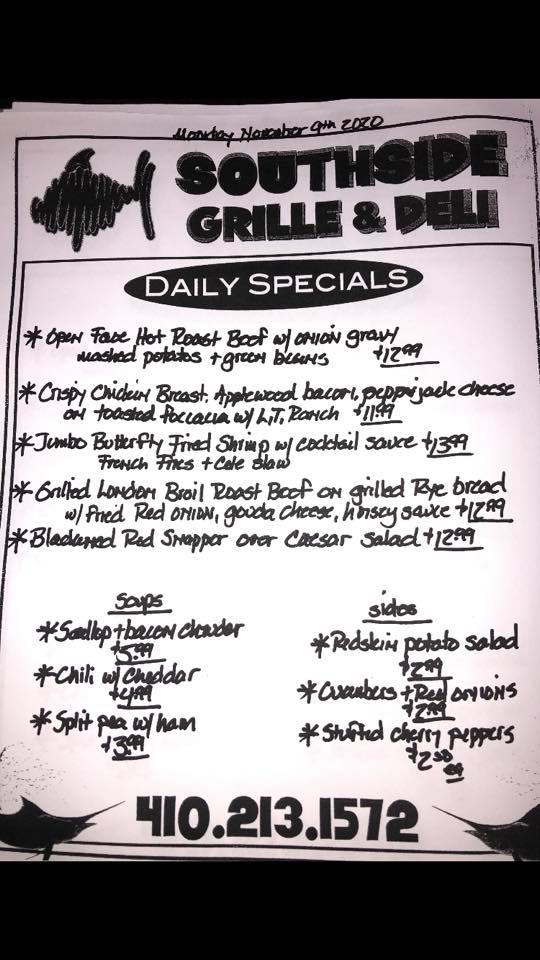 Monday November 9th 2020
SOUTHSIDE
GRILLE & DELI
DAILY SPECIALS
* Open Face Hot Roast Beef w/ onion gravy
mashed potatoes + green beans $12.99
* Crispy Chicken Breast, Applewood bacon, pepperjack cheese
on toasted Foccacia w/ L.T. Ranch $11.99
* Jumbo Butterfly Fried Shrimp w/ cocktail sauce $13.99
French Fries + Cole slaw
* Grilled London Broil Roast Beef on grilled Rye bread
w/ fried Red onion, gouda cheese, horsey sauce $12.99
* Blackened Red Snapper over Caesar salad $12.99
Soups
* Scallop + bacon chowder
$5.99
* Chili w/ Cheddar
$4.99
* Split pea w/ ham
$3.99
sides
* Redskin potato salad
$2.99
* Cucumbers + Red onions
$2.99
* Stuffed cherry peppers
$2.50
ea
410.213.1572